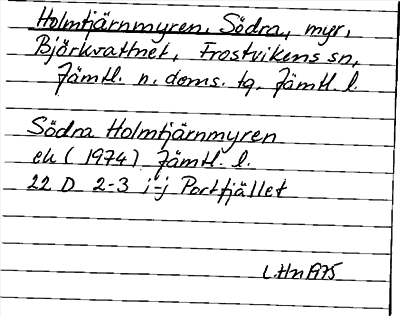 Holmtjärnmyren, Södra, myr,
Björkvattnet, Frostvikens sn,
Jämtl. n. doms. tg, Jämtl. l.
Södra Holmtjärnmyren
ek (1974) Jämtl. l.
22 D 2-3 i-j Portfjället
L.Hn 1975